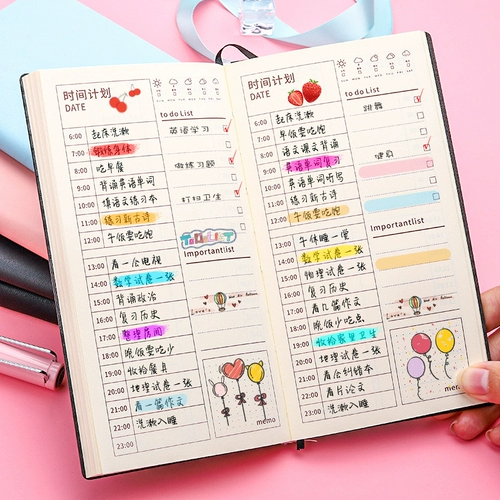 时间计划
DATE
to do List
6:00 起床洗漱
英语学习
7:00 锻炼身体
8:00 吃早餐
做练习题
9:00 背诵英语单词
10:00 填语文练习本
打扫卫生
11:00 练习新古诗
12:00 午饭要吃饱
TO DO LIST
Importantlist
13:00 看一会电视
14:00 数学试卷一张
15:00 背诵政治
16:00 复习历史
17:00 整理房间
18:00 晚饭要吃少
19:00 收拾餐具
20:00 地理试卷一张
21:00 看一篇作文
22:00 洗漱入睡
23:00
memo
时间计划
DATE
SUN MON TUE WED THU FRI SAT
to do List
6:00 起床洗漱
跳舞
7:00 早饭要吃饱
8:00 语文课文背诵
健身
9:00 英语单词复习
10:00 英语单词听写
11:00 练习新古诗
12:00 午饭要吃饱
Importantlist
13:00 午休睡一觉
14:00 数学试卷一张
15:00 物理试卷一张
16:00 复习历史
17:00 看几篇作文
18:00 晚饭少吃点
19:00 收拾家里卫生
20:00 地理试卷一张
21:00 看会纠错本
22:00 看片论文
23:00 洗漱入睡
memo